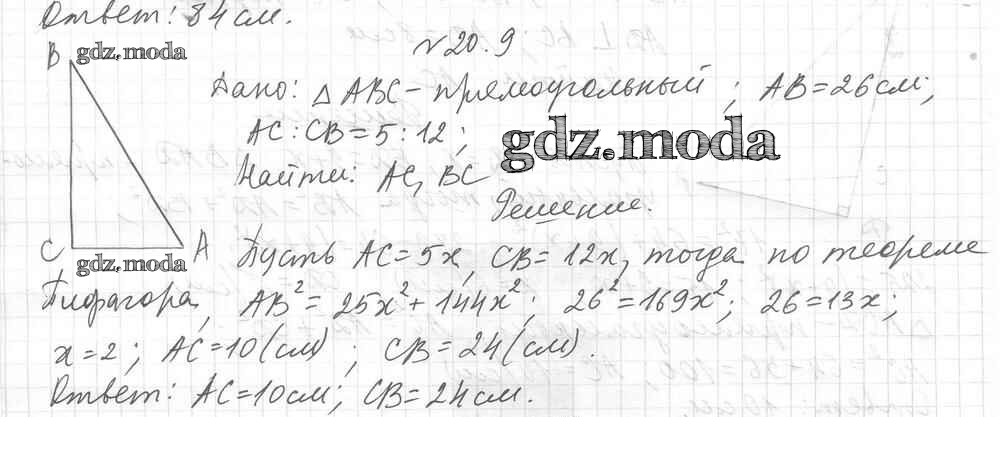 Ответ: 84 см.
№ 20.9
B gdz.moda
Дано: △ABC - прямоугольный ; AB=26 см;
AC : CB = 5 : 12 ;
gdz.moda
Найти: AC, BC
Решение.
C A
gdz.moda
Пусть AC = 5x, CB = 12x, тогда по теореме
Пифагора, AB² = 25x² + 144x² ; 26² = 169x² ; 26 = 13x ;
x = 2 ; AC = 10 (см) ; CB = 24 (см).
Ответ: AC = 10 см; CB = 24 см.